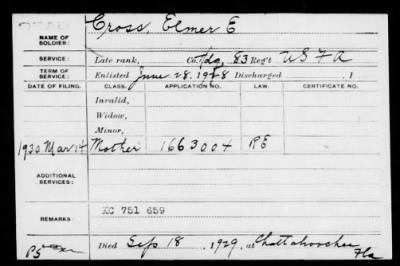 DEAD
NAME OF SOLDIER: Cross, Elmer E
SERVICE: Late rank, Co. Hdq, 83 Reg't U S F A
TERM OF SERVICE: Enlisted June 28, 1918 Discharged , 1
DATE OF FILING. CLASS. APPLICATION NO. LAW. CERTIFICATE NO.
Invalid,
Widow,
Minor,
1930 Mar 14 Mother 1663004 RE
ADDITIONAL SERVICES:
REMARKS: XC 751 659
Died Sep. 18, 1929, at Chattahoochee
PS Fla